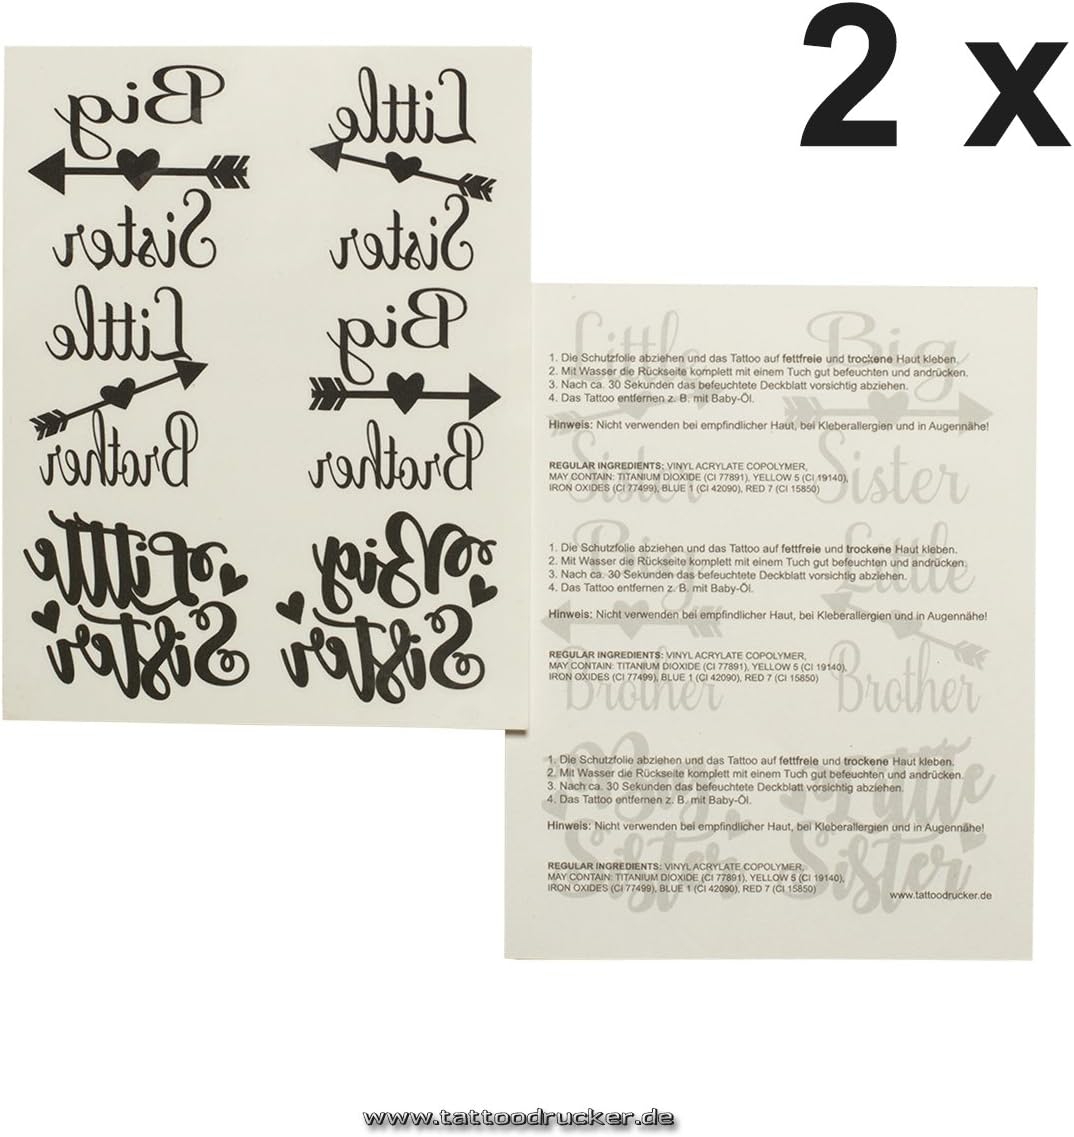 2 x
Big
Sister
Little
Sister
Little
Brother
Big
Brother
Little
Sister
Big
Sister
Little
Sister
Big
Sister
1. Die Schutzfolie abziehen und das Tattoo auf fettfreie und trockene Haut kleben.
2. Mit Wasser die Rückseite komplett mit einem Tuch gut befeuchten und andrücken.
3. Nach ca. 30 Sekunden das befeuchtete Deckblatt vorsichtig abziehen.
4. Das Tattoo entfernen z. B. mit Baby-Öl.
Hinweis: Nicht verwenden bei empfindlicher Haut, bei Kleberallergien und in Augennähe!
REGULAR INGREDIENTS: VINYL ACRYLATE COPOLYMER,
MAY CONTAIN: TITANIUM DIOXIDE (CI 77891), YELLOW 5 (CI 19140),
IRON OXIDES (CI 77499), BLUE 1 (CI 42090), RED 7 (CI 15850)
Big
Brother
Little
Brother
1. Die Schutzfolie abziehen und das Tattoo auf fettfreie und trockene Haut kleben.
2. Mit Wasser die Rückseite komplett mit einem Tuch gut befeuchten und andrücken.
3. Nach ca. 30 Sekunden das befeuchtete Deckblatt vorsichtig abziehen.
4. Das Tattoo entfernen z. B. mit Baby-Öl.
Hinweis: Nicht verwenden bei empfindlicher Haut, bei Kleberallergien und in Augennähe!
REGULAR INGREDIENTS: VINYL ACRYLATE COPOLYMER,
MAY CONTAIN: TITANIUM DIOXIDE (CI 77891), YELLOW 5 (CI 19140),
IRON OXIDES (CI 77499), BLUE 1 (CI 42090), RED 7 (CI 15850)
Big
Sister
Little
Sister
1. Die Schutzfolie abziehen und das Tattoo auf fettfreie und trockene Haut kleben.
2. Mit Wasser die Rückseite komplett mit einem Tuch gut befeuchten und andrücken.
3. Nach ca. 30 Sekunden das befeuchtete Deckblatt vorsichtig abziehen.
4. Das Tattoo entfernen z. B. mit Baby-Öl.
Hinweis: Nicht verwenden bei empfindlicher Haut, bei Kleberallergien und in Augennähe!
REGULAR INGREDIENTS: VINYL ACRYLATE COPOLYMER,
MAY CONTAIN: TITANIUM DIOXIDE (CI 77891), YELLOW 5 (CI 19140),
IRON OXIDES (CI 77499), BLUE 1 (CI 42090), RED 7 (CI 15850)
www.tattoodrucker.de
www.tattoodrucker.de